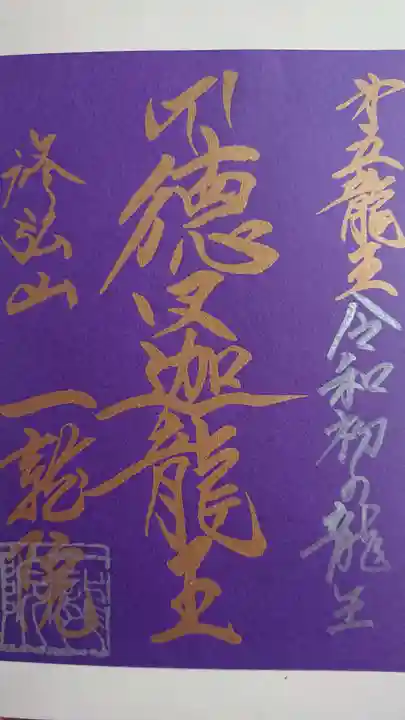 第五龍王 令和初の龍王
徳叉迦龍王
弘山 一龍院